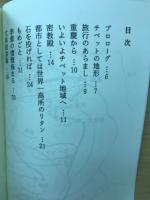 目次
プロローグ…6
チベットの地形…7
旅行のあらまし…9
重慶から…10
いよいよチベット地域へ…11
密教殿…14
都市としては世界一高所のリタン…21
石を投げれば…24
もめごと…31